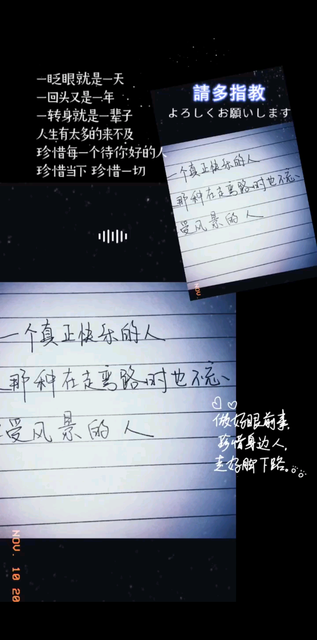 一眨眼就是一天
一回头又是一年
一转身就是一辈子
人生有太多的来不及
珍惜每一个待你好的人
珍惜当下 珍惜一切
請多指教
よろしくお願いします
一个真正快乐的人
那种在走弯路时也不忘
受风景的人
NOV
一个真正快乐的人
那种在走弯路时也不忘
受风景的人
做好眼前事
珍惜身边人
走好脚下路。
NOV. 10 20